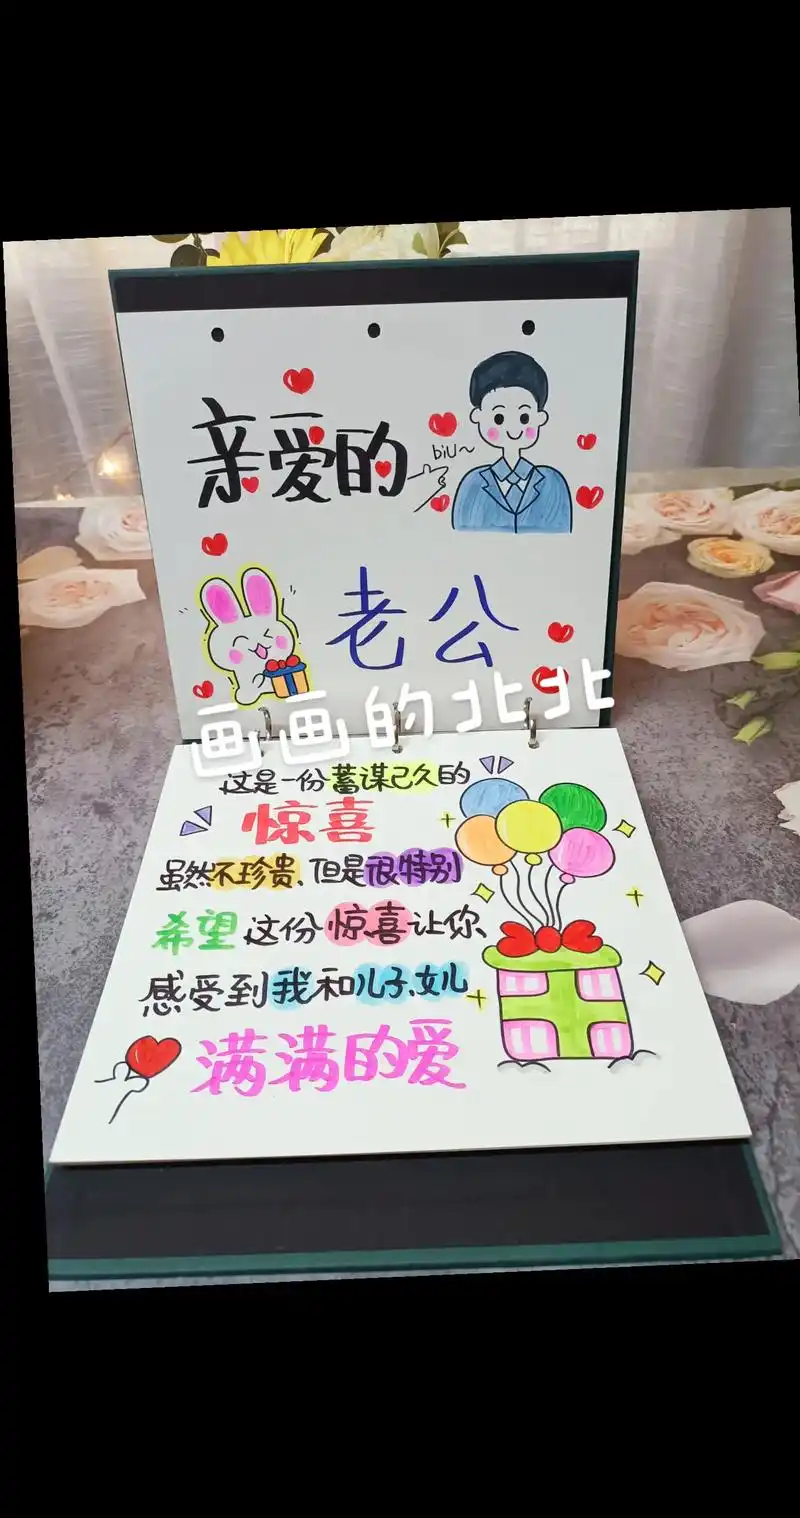 亲爱的
biu~
老公
画画的北北
这是一份蓄谋已久的
惊喜
虽然不珍贵、但是很特别
希望这份惊喜让你
感受到我和儿子、女儿
满满的爱